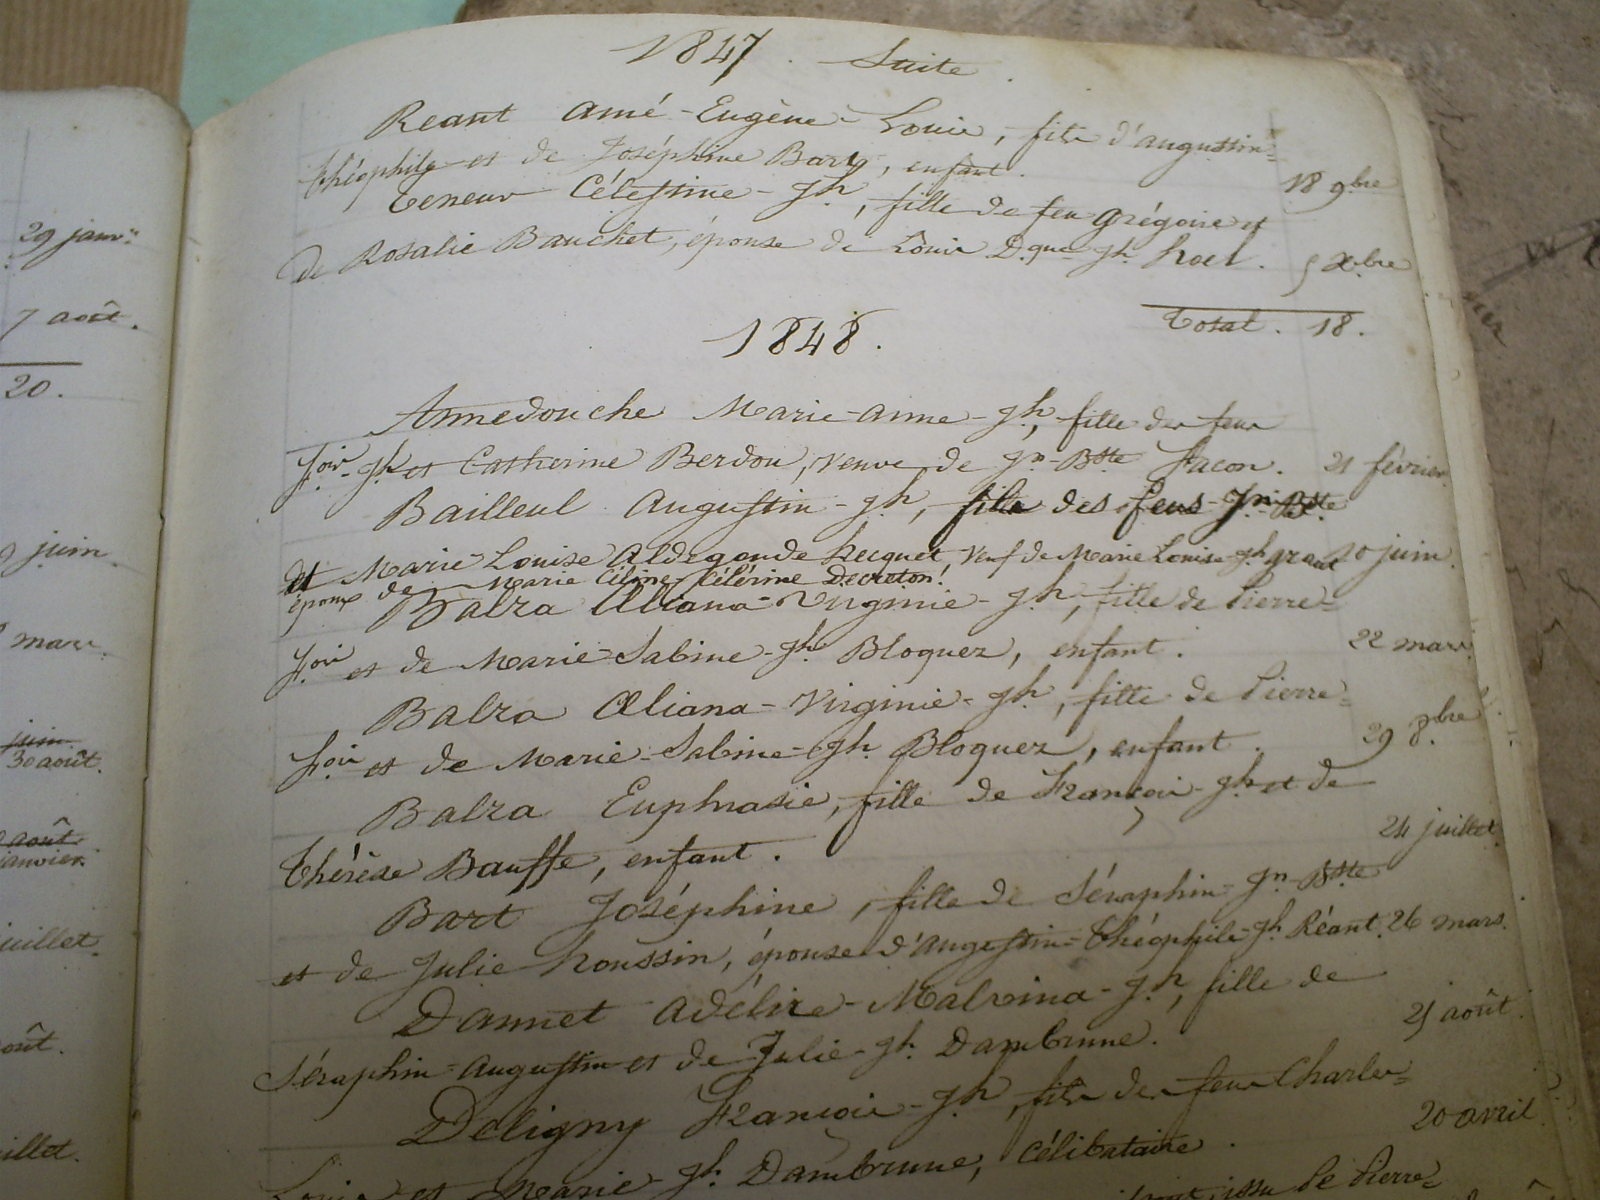 29 janv.
7 août.
20.
juin
mars.
juin
30 août.
août.
janvier.
juillet.
août.
juillet.
1847. Suite.
Réant Amé-Eugène-Louis, fils d'augustin=
théophile et de Joséphine Bart, enfant. 18 9.bre
Teneur Célestine-Jh, fille de feu grégoire et
de Rosalie Bauchet, épouse de Louis D.que Jh. hoel. 5 X.bre
Total. 18.
1848.
Annedouche Marie-anne-Jh, fille des feux
f.ois-Jh et Catherine Berdou, veuve de Jn-Bste facon. 21 février.
Bailleul Augustin-Jh, fils des feus Jn-Bste
et Marie-Louise Aldegonde hecquet, Veuf de Marie Louise Jh 10 juin.
époux de Marie Céline Célérine Decroton.
Balza Æliana-Virginie-Jh, fille de Pierre=
f.ois et de Marie-Sabine-Jh Bloquez, enfant. 22 mars.
Balza Æliana-Virginie-Jh, fille de Pierre=
f.ois et de Marie-Sabine-Jh. Bloquez, enfant. 29 8.bre
Balza Euphrasie, fille de François-Jh et de
Thérèse Bauffe, enfant. 24 juillet.
Bart Joséphine, fille de Séraphin-Jn-Bste
et de Julie houssin, épouse d'augustin-théophile-Jh Réant. 26 mars.
Dannet Adélire-Malvina-Jh, fille de
Séraphin-Augustin et de Julie-Jh. Dambrune. 21 août.
Deligny François-Jh, fils des feux Charles=
Louis et Marie-Jh. Dambrune, Célibataire. 20 avril.
issu de Pierre=